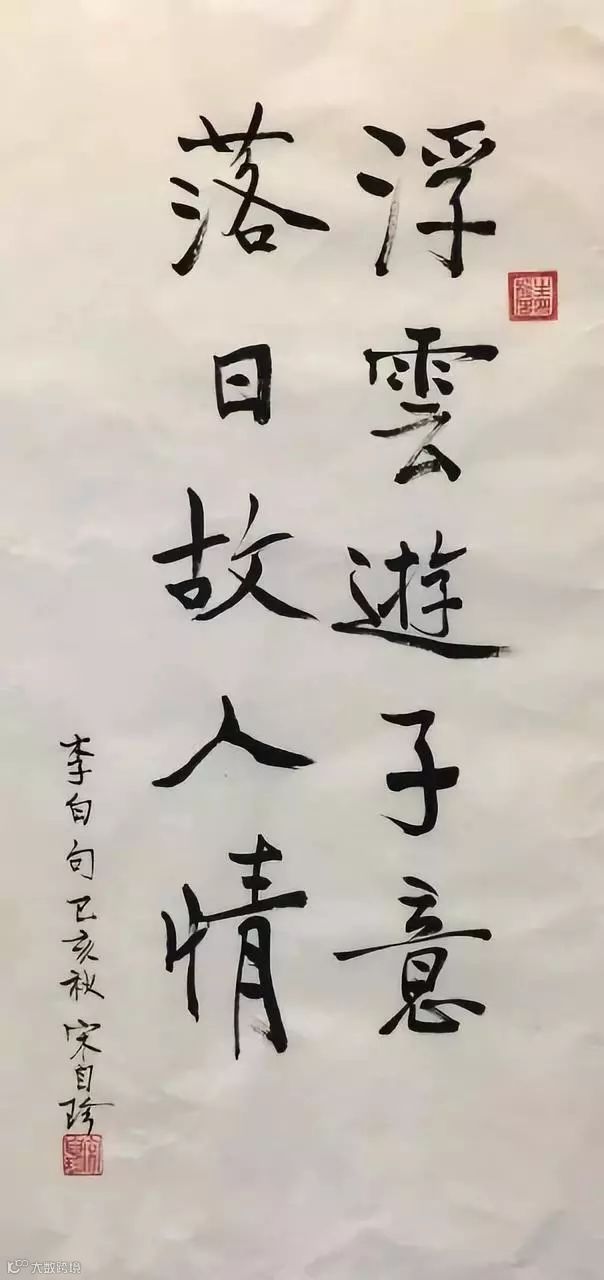 浮雲遊子意
落日故人情
李白句 己亥秋 宋自珍
大数跨境